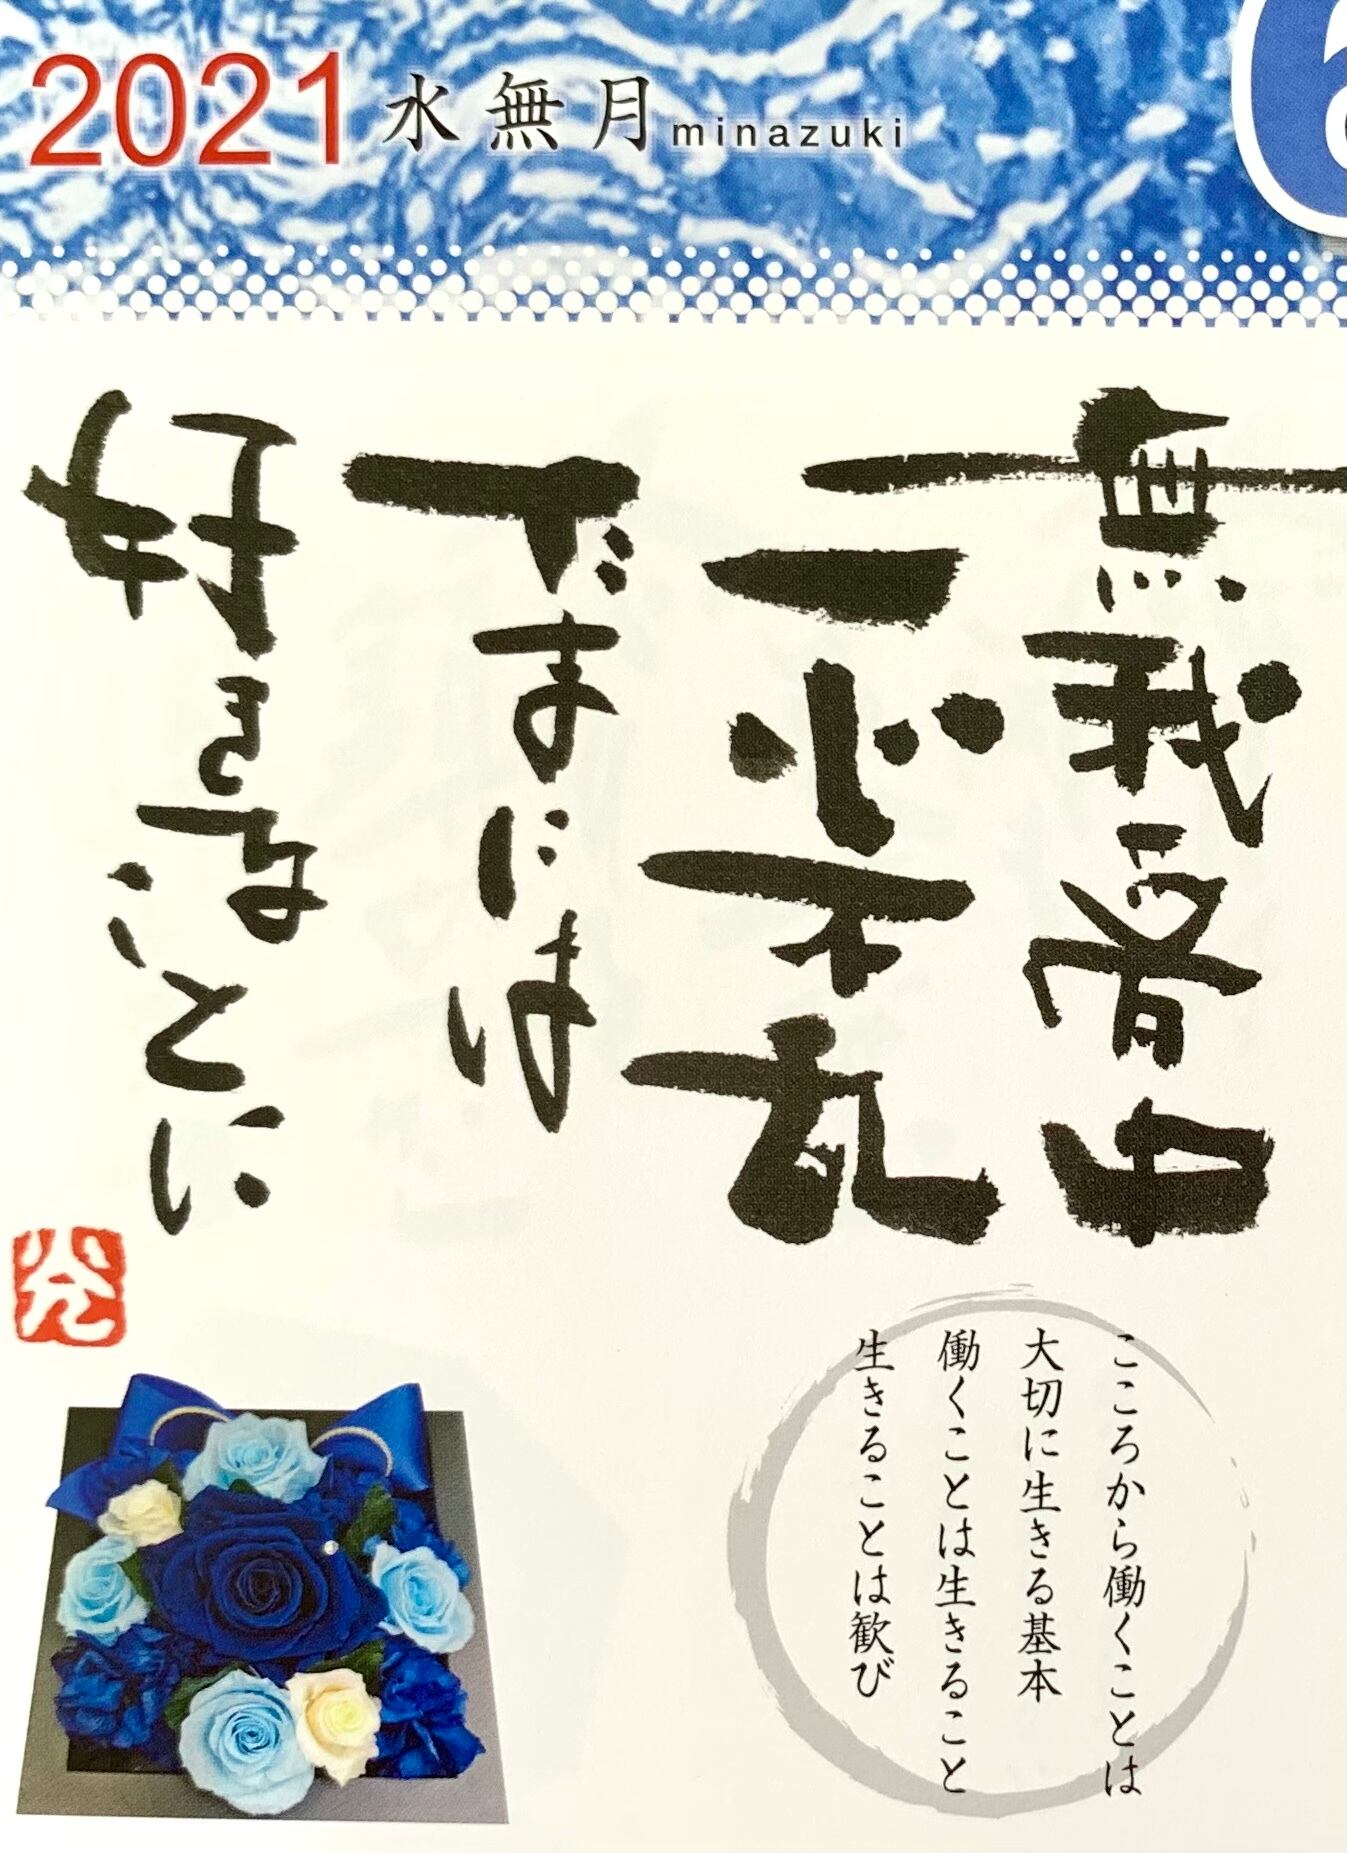 2021 水無月 minazuki
6
無我夢中
一心不乱
たまには
好きなことに
こころから働くことは
大切に生きる基本
働くことは生きること
生きることは歓び